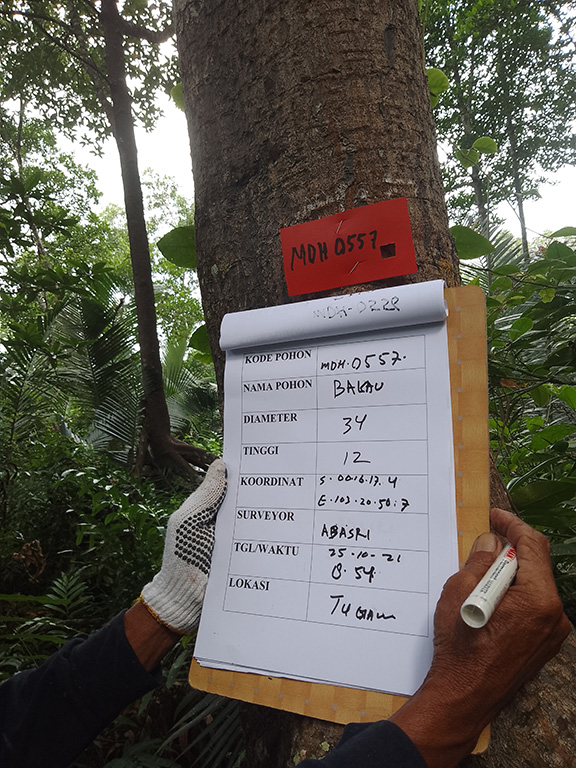 MDH 0557
KODE POHON MDH.0557.
NAMA POHON BAKAU
DIAMETER 34
TINGGI 12
KOORDINAT S.00.16.17.4
E.103.20.50.7
SURVEYOR ABASRI
TGL/WAKTU 25-10-21
8.54
LOKASI TUGAU